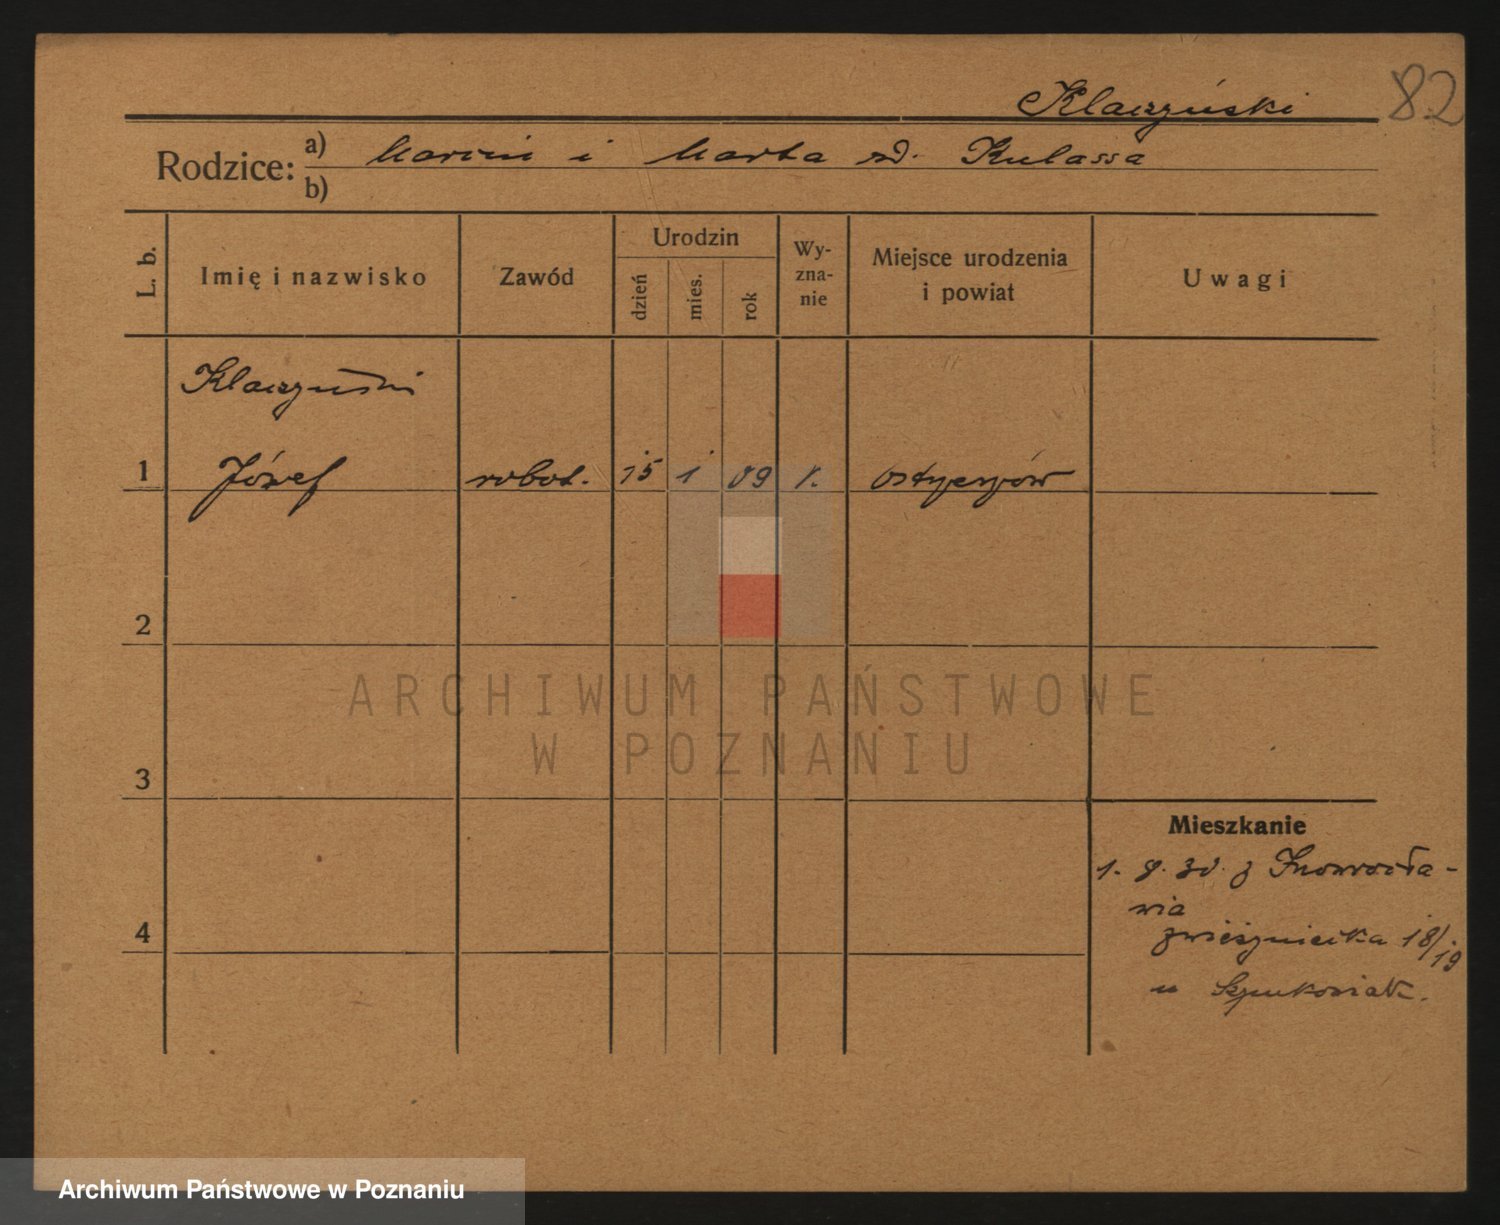 Klaczyński 82
Rodzice: a) Marcin i Marta zd. Kulassa
b)
L. b.
Imię i nazwisko
Zawód
Urodzin
dzień
mies.
rok
Wy-
zna-
nie
Miejsce urodzenia
i powiat
Uwagi
Klaczyński
1 Józef robot. 15 1 09 r.
2
3
4
Mieszkanie
1. 9. 30. z Inowrocła-
wia
18/19
u
ARCHIWUM PAŃSTWOWE
W POZNANIU
Archiwum Państwowe w Poznaniu